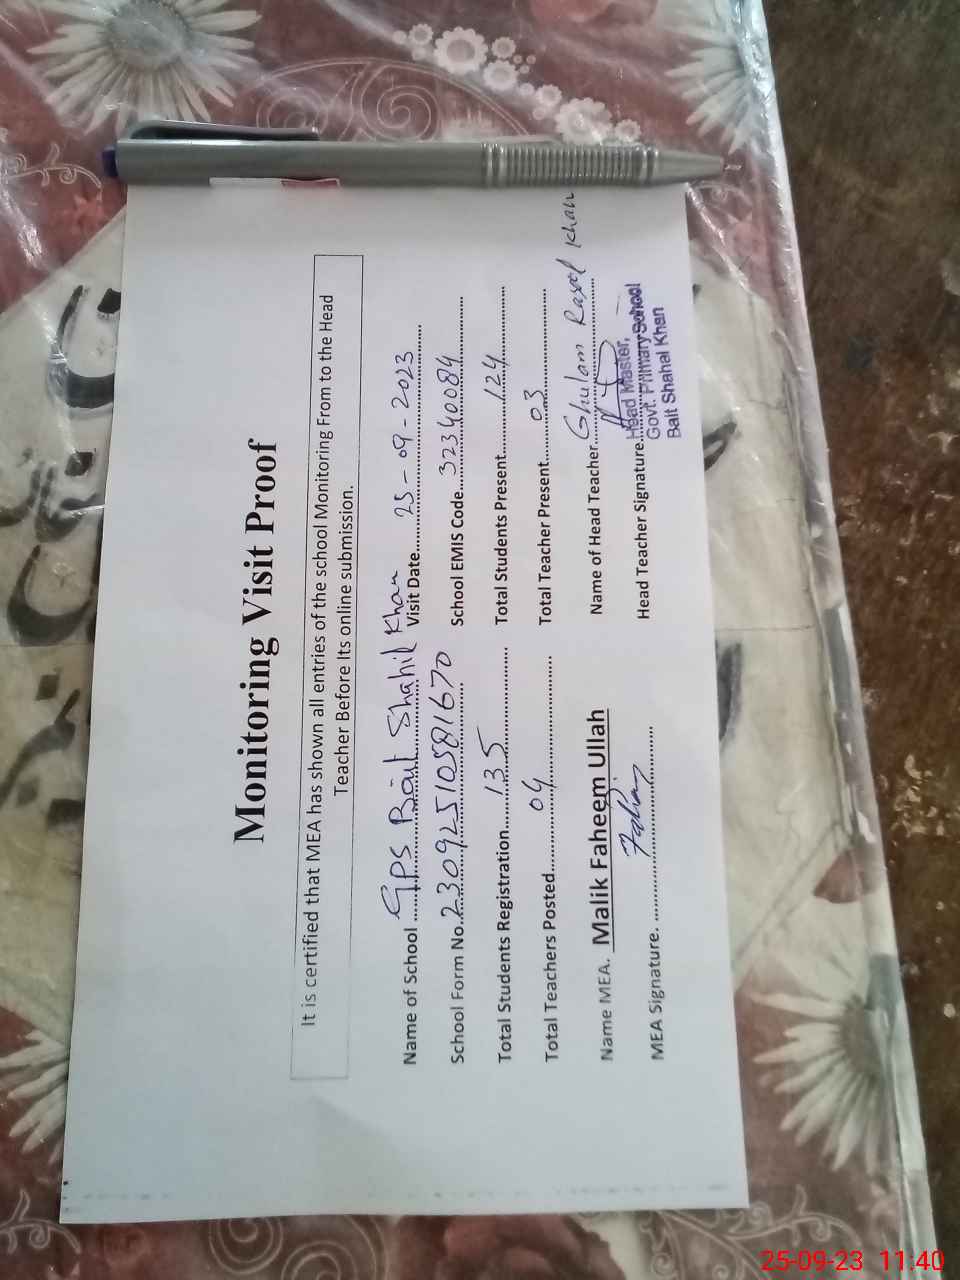 Monitoring Visit Proof
It is certified that MEA has shown all entries of the school Monitoring From to the Head
Teacher Before Its online submission.
Name of School ....GPS Bait Shahil Khan Visit Date............25-09-2023
School Form No.23092510581670 School EMIS Code...32340084
Total Students Registration......135 Total Students Present.........124
Total Teachers Posted............04 Total Teacher Present..........03
Name MEA. Malik Faheem Ullah Name of Head Teacher.Ghulam Rasol Khan
MEA Signature. Head Teacher Signature.
Head Master,
Govt. Primary School
Bait Shahal Khan
25-09-23 11:40